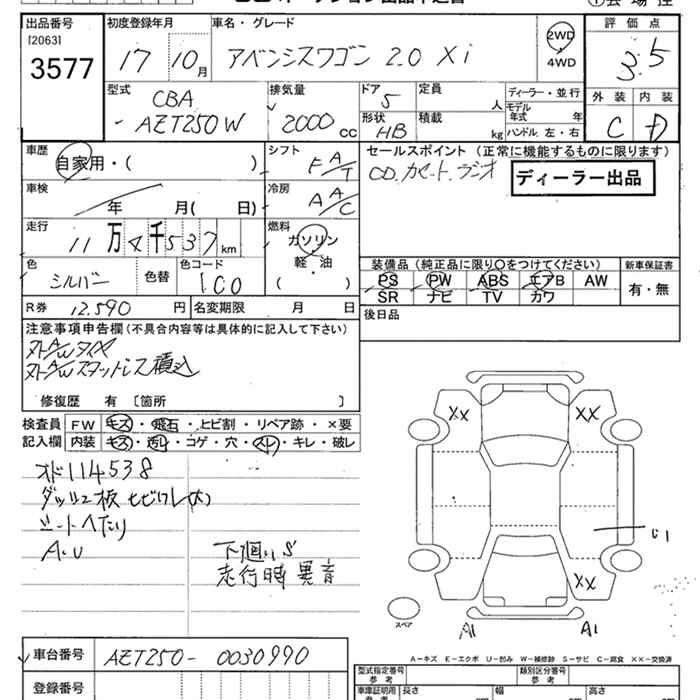 出品番号
[2063]
3577
初度登録年月
17 10月
車名・グレード
アベンシスワゴン 2.0 Xi
2WD
4WD
評価点
3.5
外装 内装
C D
型式
CBA
-AZT250W
排気量
2000cc
ドア
5
形状
HB
定員
人
積載
kg
ディーラー・並行
モデル年式 年
ハンドル 左・右
車歴
自家用・( )
シフト
FAT
セールスポイント (正常に機能するものに限ります)
CD.カセット.ラジオ
ディーラー出品
車検
年 月( 日)
冷房
AAC
走行
11万4千537km
燃料
ガソリン
軽・油
( )
色
シルバー
色替
色コード
1C0
装備品 (純正品に限り○をつけてください)
新車保証書
PS PW ABS エアB AW
SR ナビ TV カワ
有・無
R券 12.590 円
名変期限 月 日
後日品
注意事項申告欄 (不具合内容等は具体的に記入して下さい)
外A/Wタイヤ
外A/Wスタッドレス積込
修復歴 有 [箇所 ]
検査員 FW キズ・飛石・ヒビ割・リペア跡・×要
記入欄 内装 キズ・汚レ・コゲ・穴・スレ・キレ・破レ
オド114538
ダッシュ板ヒビワレ(大)
シートヘたり
A.U
下廻りS
走行時異音
XX XX
XX
U1
スペア
A1 A1
A-キズ E-エクボ U-凹み W-補修跡 S-サビ C-腐食 XX-交換済
車台番号 AZT250-0030990
登録番号
型式指定番号
参考
類別区分番号
参考
車庫証明用
参考
長さ 幅 高さ